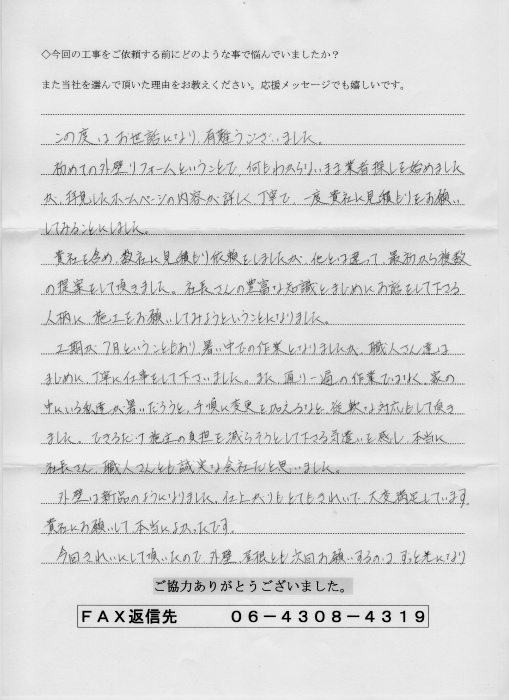 ◇今回の工事をご依頼する前にどのような事で悩んでいましたか？
また当社を選んで頂いた理由をお教えください。応援メッセージでも嬉しいです。
この度はお世話になり、有難うございました。
初めての外壁リフォームということで、何もわからないまま業者探しを始めました
が、拝見したホームページの内容が詳しく丁寧で、一度貴社に見積もりをお願い
してみることにしました。
貴社を含め、数社に見積もり依頼をしましたが、他とは違って、最初から複数
の提案をして頂きました。社長さんの豊富な知識とまじめにお話をして下さる
人柄に、施工をお願いしてみようということになりました。
工期が7月ということもあり、暑い中での作業となりましたが、職人さん達は
まじめに丁寧に仕事をして下さいました。また、通り一遍の作業ではなく、家の
中にいる私達が暑いだろうと、手順に変更を加えるなど、柔軟な対応もして頂き
ました。できるだけ施主の負担を減らそうとして下さる気遣いを感じ、本当に
社長さん、職人さんとも誠実な会社だと思いました。
外壁は新品のようになりました。仕上がりもとてもきれいで、大変満足しています。
貴社にお願いして本当によかったです。
今回きれいにして頂いたので、外壁、屋根とも次回お願いするのはずっと先になり
ご協力ありがとうございました。
ＦＡＸ返信先　０６－４３０８－４３１９